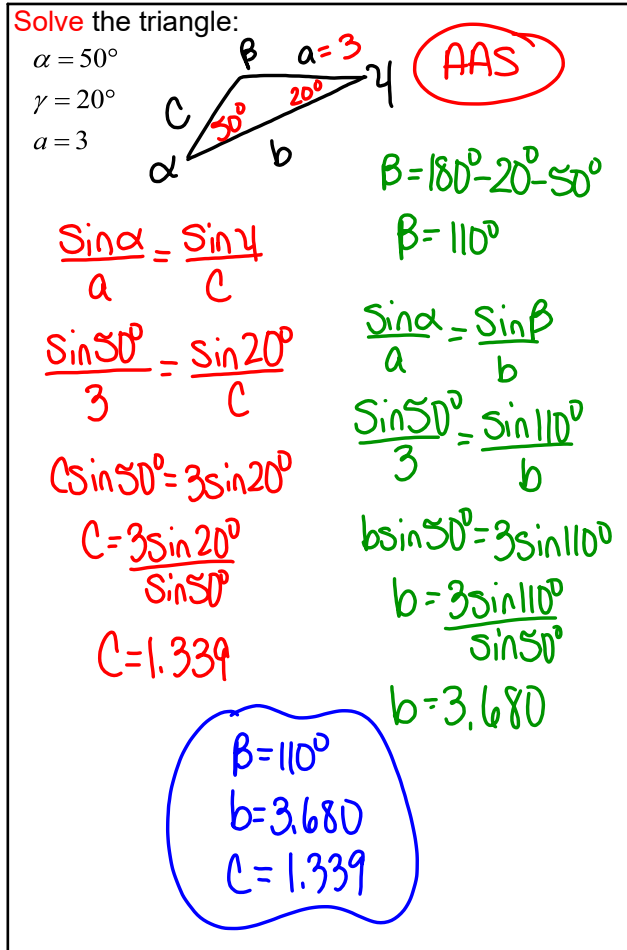 Solve the triangle:
α = 50°
γ = 20°
a = 3
β a = 3
C 50° 20° γ
α b
AAS
sinα/a = sinγ/C
sin50°/3 = sin20°/C
Csin50° = 3sin20°
C = 3sin20°/sin50°
C = 1.339
β = 180° - 20° - 50°
β = 110°
sinα/a = sinβ/b
sin50°/3 = sin110°/b
bsin50° = 3sin110°
b = 3sin110°/sin50°
b = 3.680
β = 110°
b = 3.680
C = 1.339